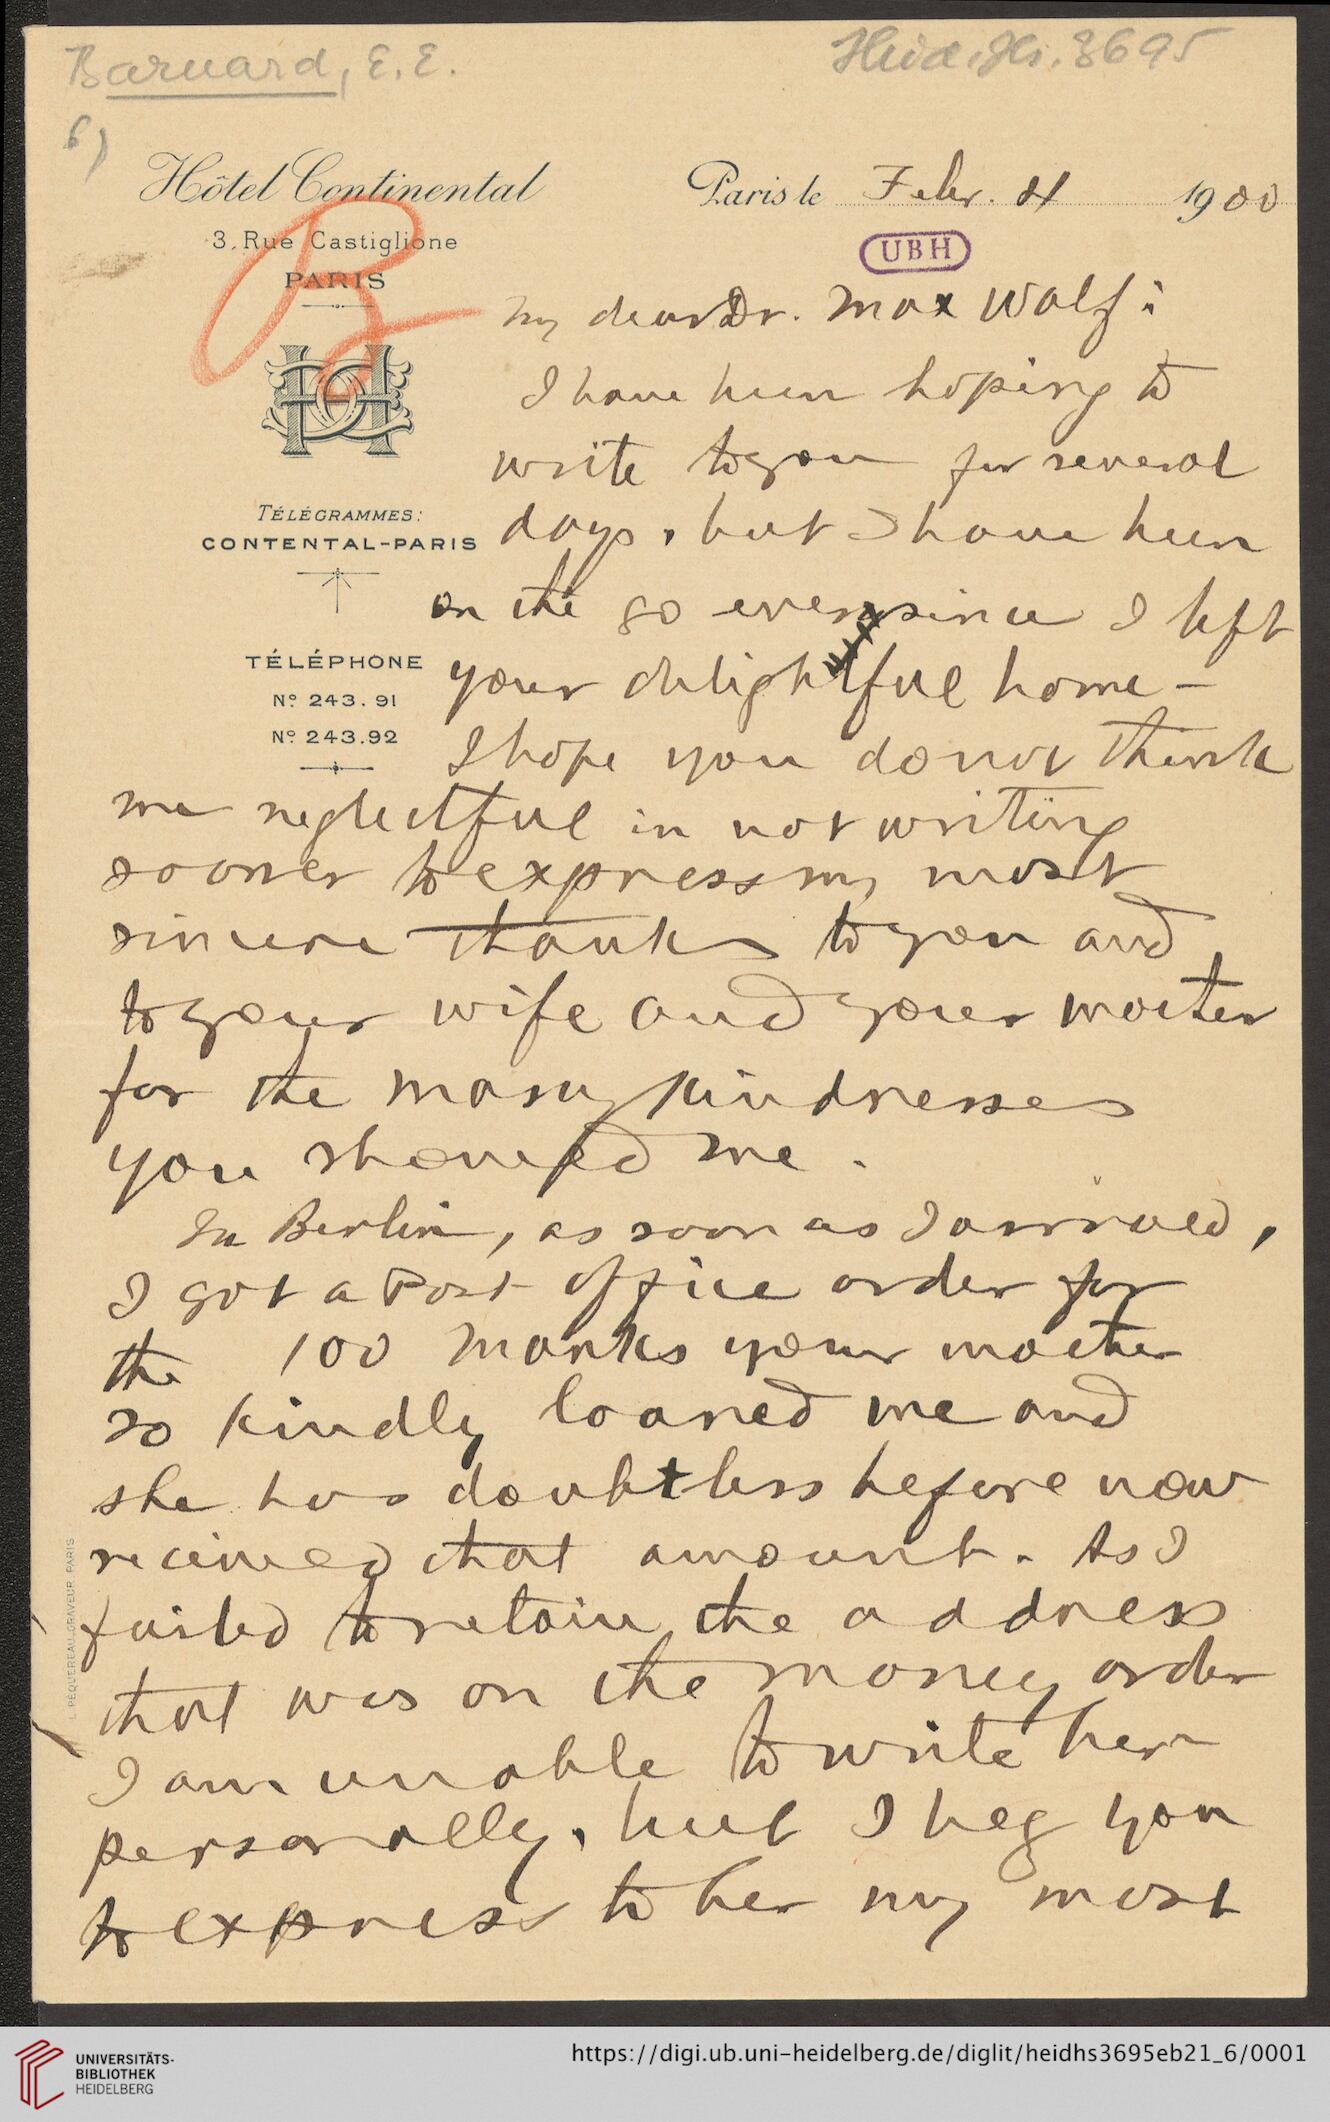 Barnard, E. E.
Heid. Hs. 3695
6)
Hôtel Continental
3, Rue Castiglione
PARIS
Paris le Febr. 4 1900
UBH
B
TÉLÉGRAMMES:
CONTENTAL-PARIS
TÉLÉPHONE
Nº 243.91
Nº 243.92
My dear Dr. Max Wolf:
I have been hoping to
write to you for several
days, but I have been
on the go ever since I left
your delightful home –
I hope you do not think
me neglectful in not writing
sooner to express my most
sincere thanks to you and
to your wife and your mother
for the many kindnesses
you showed me.
In Berlin, as soon as I arrived,
I got a Post office order for
the 100 Marks your mother
so kindly loaned me and
she has doubtless before now
received that amount. As I
failed to retain the address
that was on the money order
I am unable to write her
personally, but I beg you
to express to her my most
L. PÉQUEREAU, GRAVEUR PARIS
UNIVERSITÄTS-
BIBLIOTHEK
HEIDELBERG
https://digi.ub.uni-heidelberg.de/diglit/heidhs3695eb21_6/0001